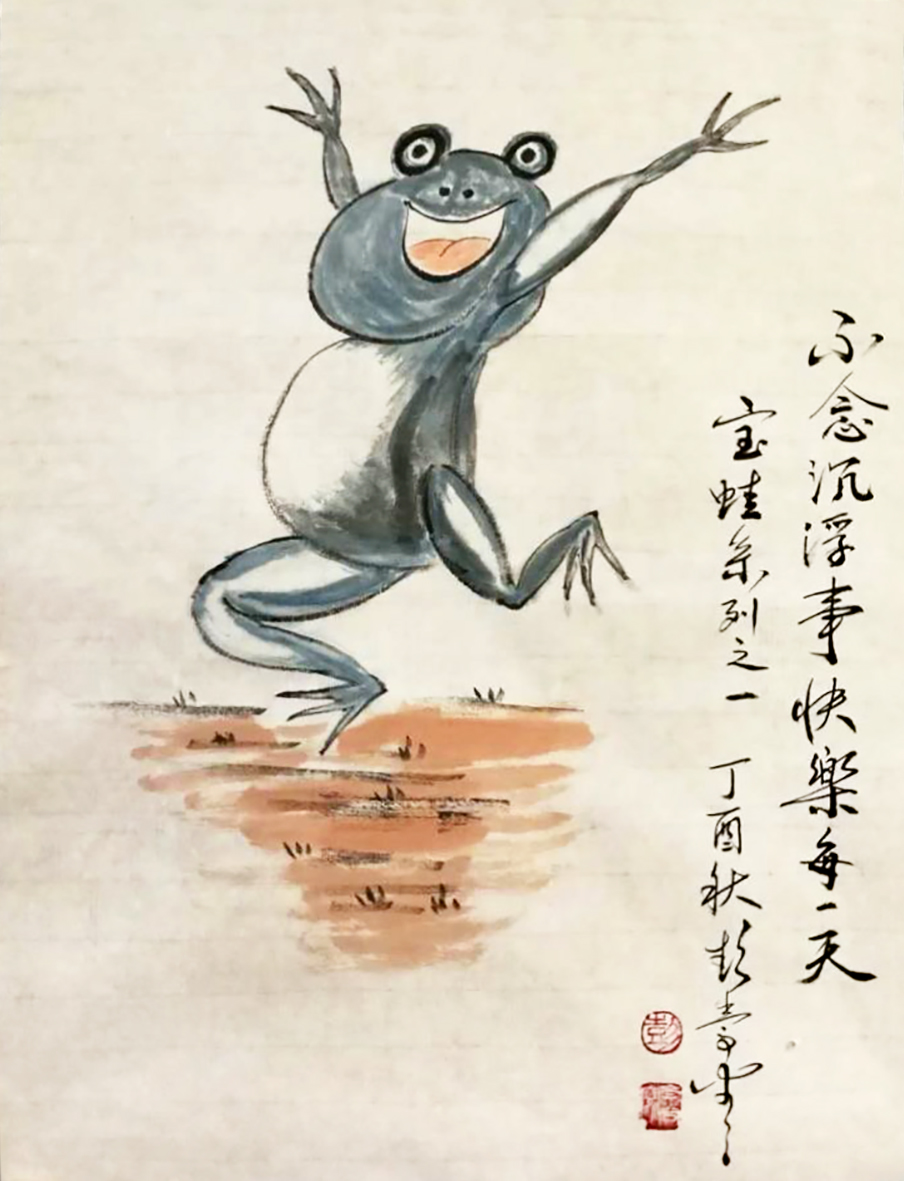 不念沉浮事快樂每一天
宝蛙系列之一 丁酉秋彭
彭